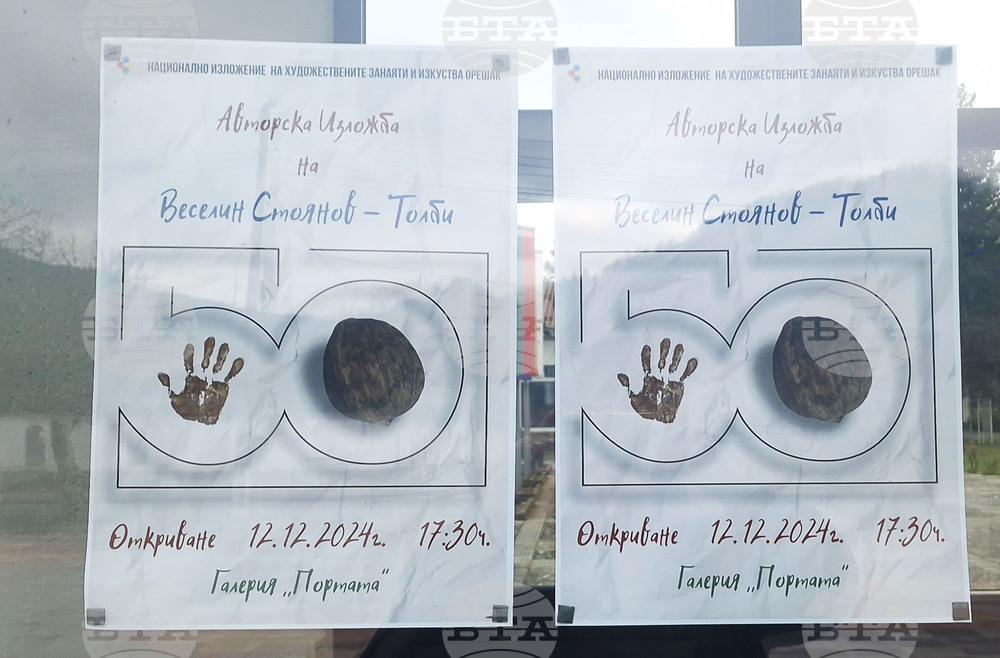 НАЦИОНАЛНО ИЗЛОЖЕНИЕ НА ХУДОЖЕСТВЕНИТЕ ЗАНАЯТИ И ИЗКУСТВА ОРЕШАК
Авторска Изложба
на
Веселин Стоянов – Толби
50
Откриване 12.12.2024г. 17:30ч.
Галерия ,,Портата"
НАЦИОНАЛНО ИЗЛОЖЕНИЕ НА ХУДОЖЕСТВЕНИТЕ ЗАНАЯТИ И ИЗКУСТВА ОРЕШАК
Авторска Изложба
на
Веселин Стоянов – Толби
50
Откриване 12.12.2024г. 17:30ч.
Галерия ,,Портата"
БТА
БТА
БТА
БТА
БТА
БТА
БТА
БТА
БТА